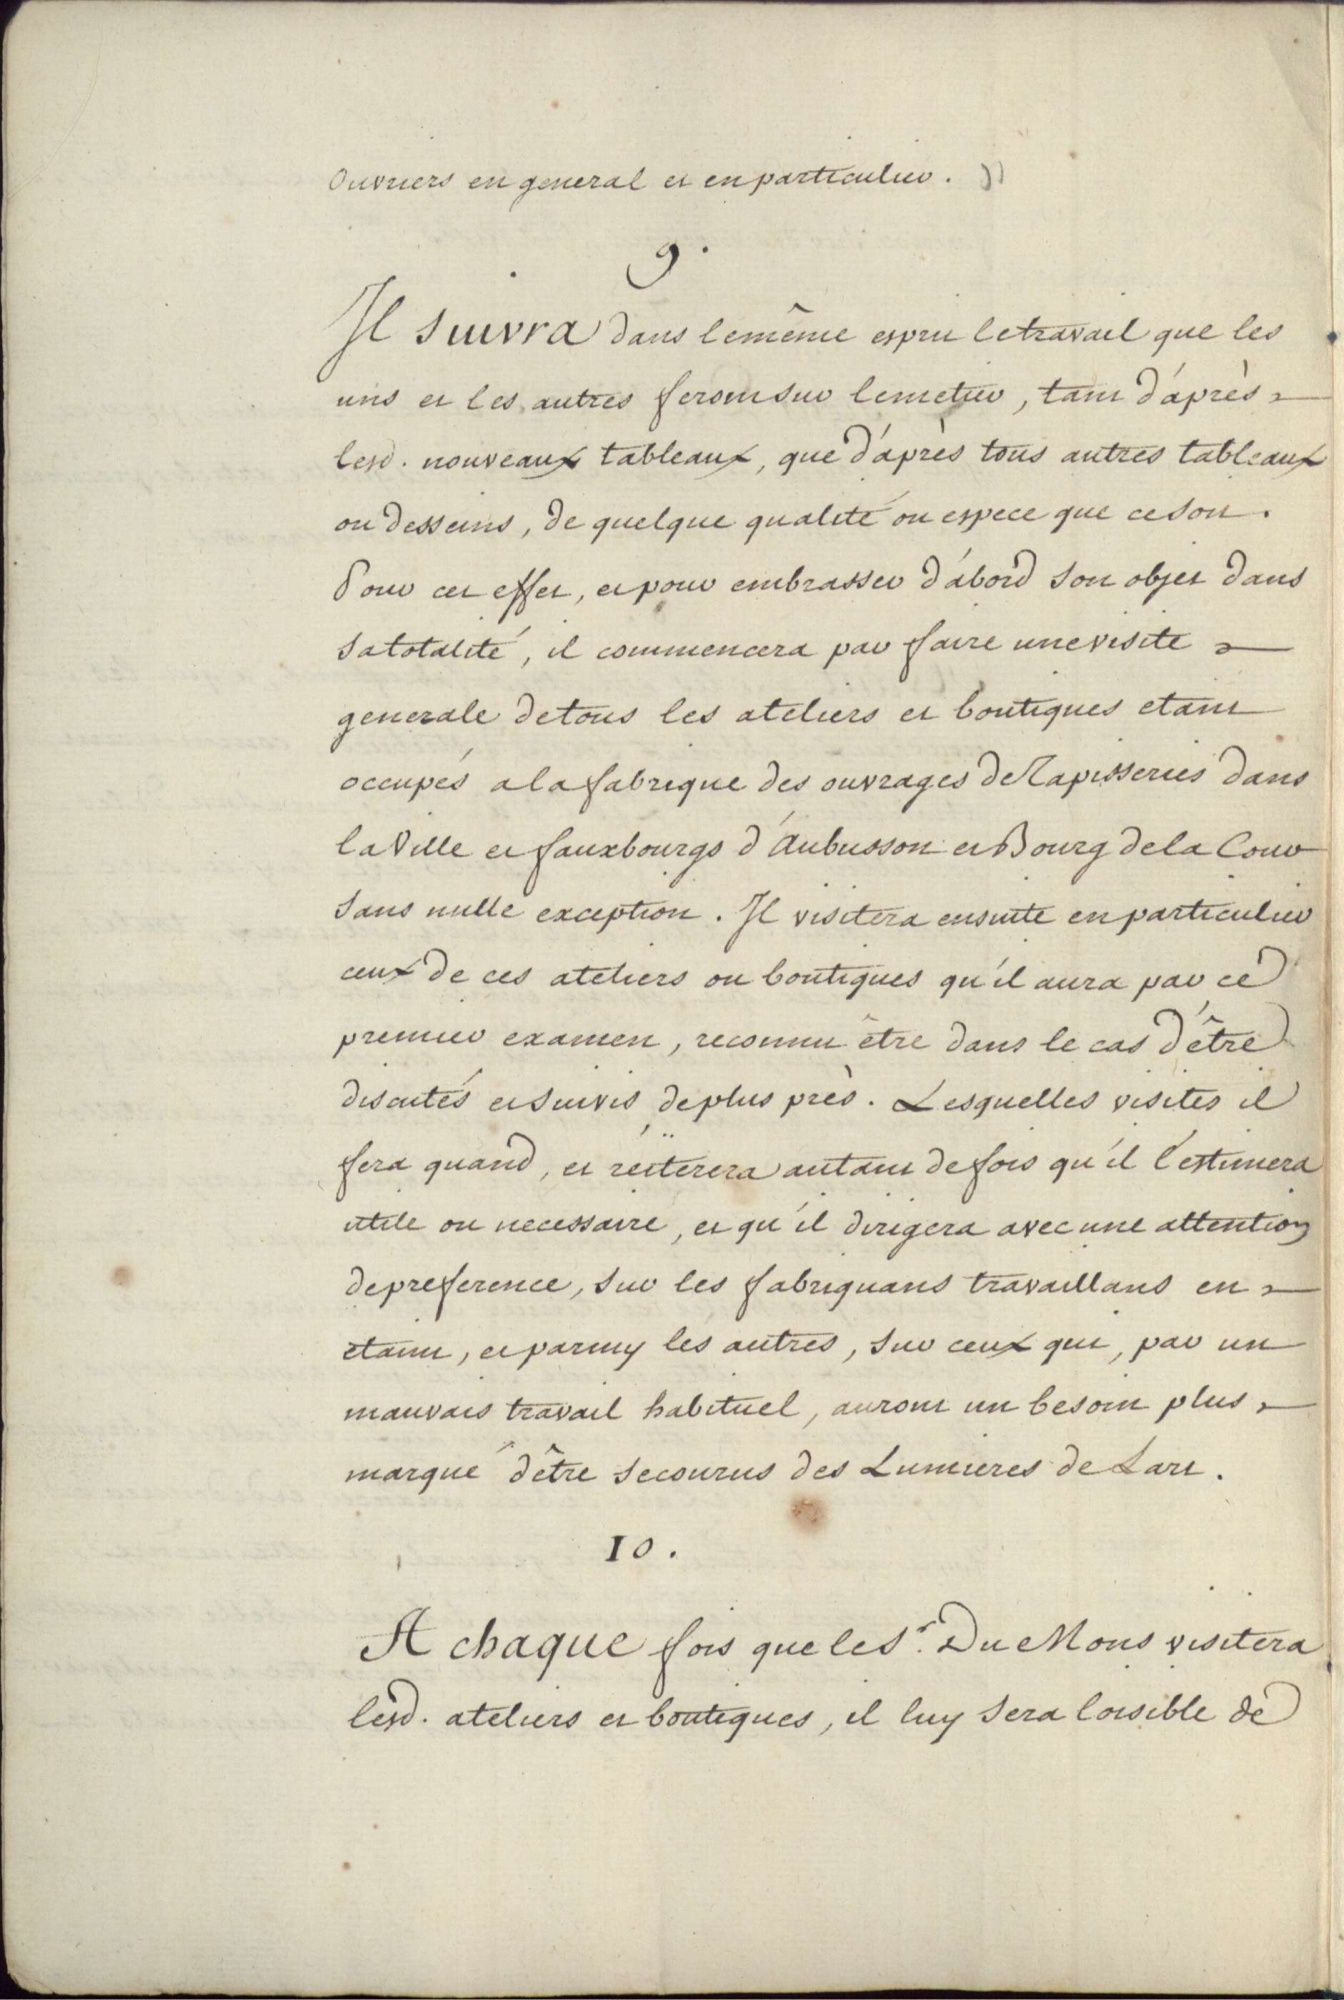 Ouvriers en general et en particulier. ))
9.
Il suivra dans le même esprit le travail que les
uns et les autres feront sur le metier, tant d'après
lesd. nouveaux tableaux, que d'après tous autres tableaux
ou desseins, de quelque qualité ou espece que ce soit.
Pour cet effet, et pour embrasser d'abord son objet dans
sa totalité, il commencera par faire une visite
generale de tous les ateliers et boutiques etant
occupés a la fabrique des ouvrages de Tapisseries dans
la Ville et fauxbourgs d'Aubusson et Bourg de la Cour
sans nulle exception. Il visitera ensuite en particulier
ceux de ces ateliers ou boutiques qu'il aura par ce
premier examen, reconnu être dans le cas d'être
discutés et suivis de plus près. Lesquelles visites il
fera quand, et réiterera autant de fois qu'il l'estimera
utile ou necessaire, et qu'il dirigera avec une attention
de preference, sur les fabriquans travaillans en
etaim, et parmy les autres, sur ceux qui, par un
mauvais travail habituel, auront un besoin plus
marqué d'être secourus des Lumieres de Lart.
10.
A chaque fois que le Sr. Du Mons visitera
lesd. ateliers et boutiques, il luy sera loisible de